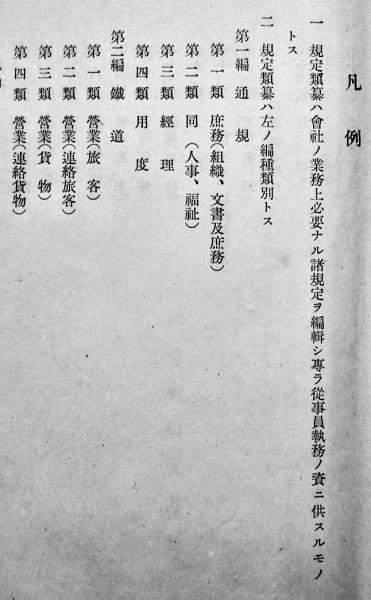 凡例
一 規定類纂ハ會社ノ業務上必要ナル諸規定ヲ編輯シ專ラ從事員執務ノ資ニ供スルモノ
トス
二 規定類纂ハ左ノ編種類別トス
第一編 通規
第一類 庶務(組織、文書及庶務)
第二類 同(人事、福祉)
第三類 經理
第四類 用度
第二編 鐵道
第一類 營業(旅客)
第二類 營業(連絡旅客)
第三類 營業(貨物)
第四類 營業(連絡貨物)